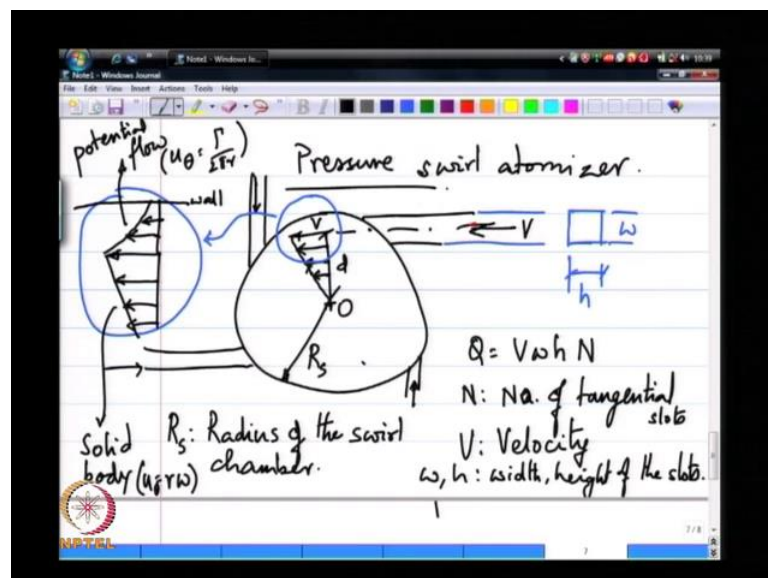 Note1 - Windows Jo...
10:39
Note1 - Windows Journal
File Edit View Insert Actions Tools Help
B I
potential
flow (uθ = Γ/2πr)
Pressure swirl atomizer.
wall
V
V
w
d
h
O
Rs
Q = V w h N
N: No. of tangential
slots
V: Velocity
w, h: width, height of the slots.
Solid
body (uθ = rω)
Rs: Radius of the swirl
chamber.
7/8
7
NPTEL